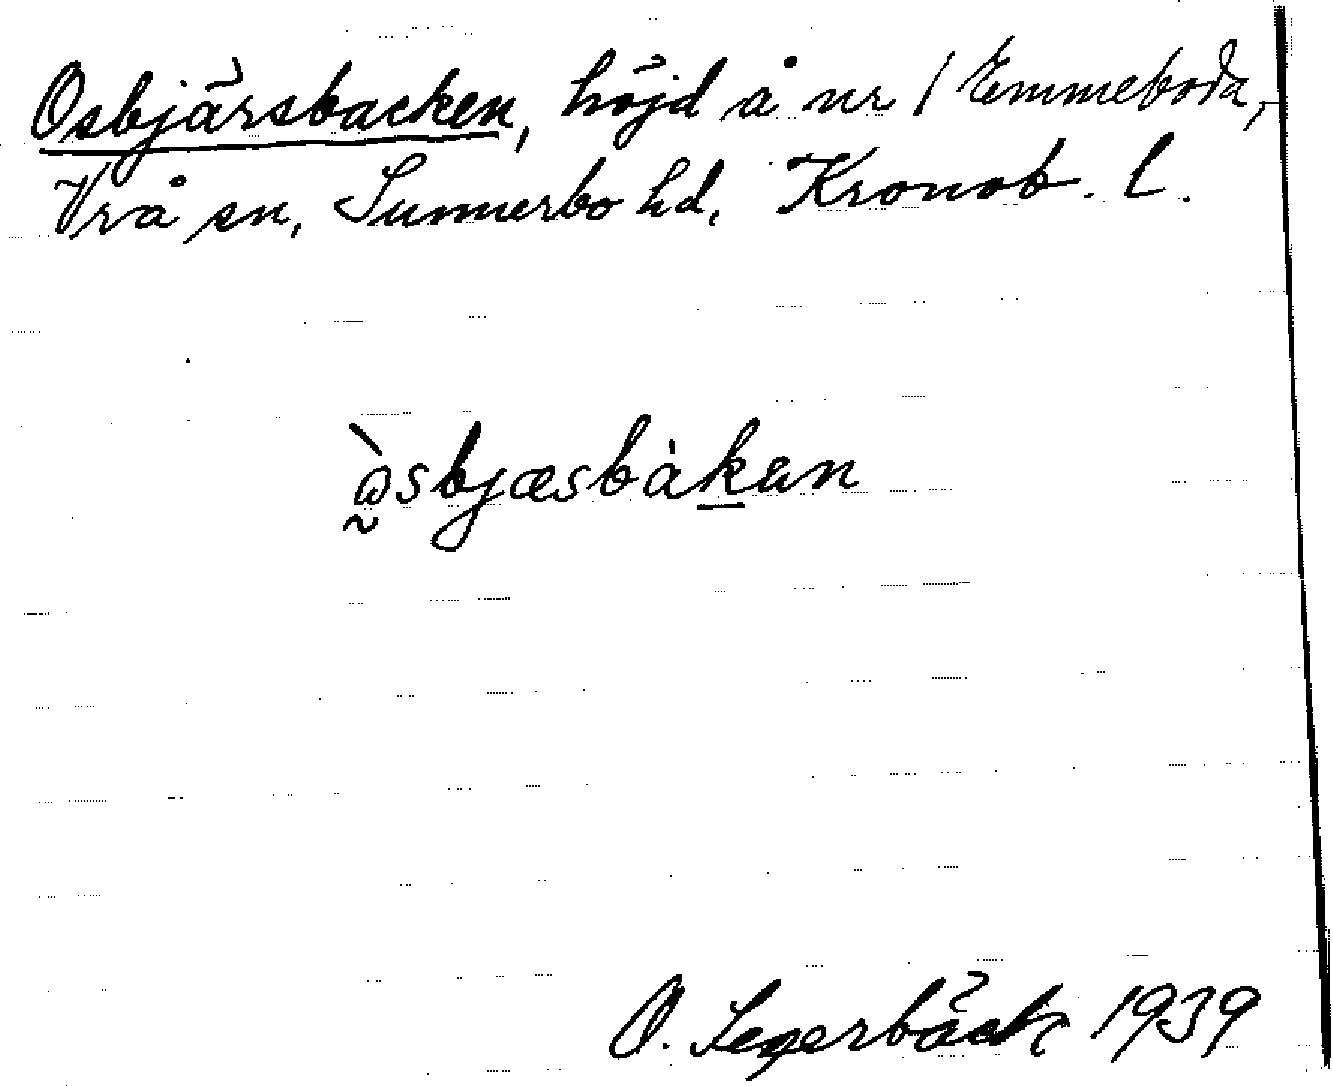 Osbjärsbacken, höjd å nr 1 Emmeboda,
Vrå sn, Sunnerbo hd, Kronob. l.
ò̰sbjæsbàkan
O. Segerbäck 1939